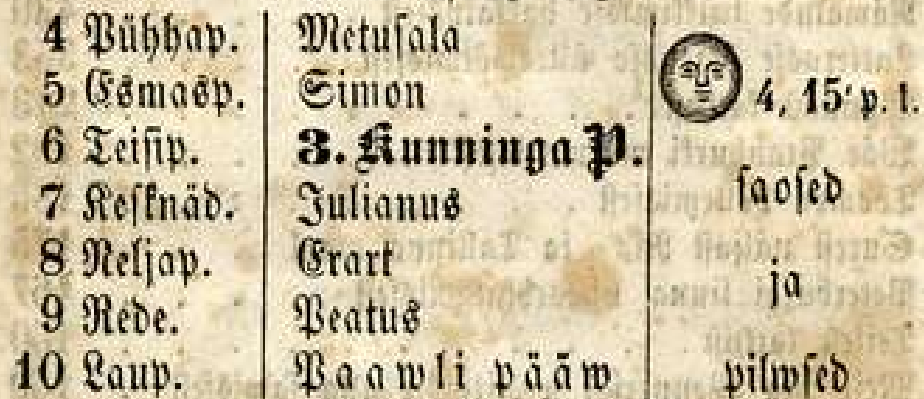 4 Pühhap. Metusala
5 Esmasp. Simon 4, 15' p. l.
6 Teisip. 3. Kunninga P.
7 Kesknäd. Julianus saosed
8 Neljap. Erart ja
9 Rede. Peatus
10 Laup. Paawli pääw pilwsed